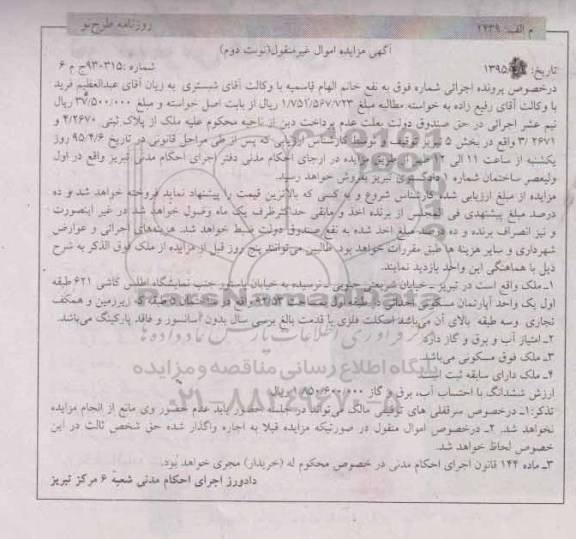 م الف- ۲۴۳۹ روزنامه طرح نو
آگهی مزایده اموال غیرمنقول(نوبت دوم)
تاریخ: ۱۳۹۵ شماره: ۹۳۰۳۱۵ج م ۶
درخصوص پرونده اجرائی شماره فوق به نفع خانم الهام قاسمیه با وکالت آقای شبستری به زیان آقای عبدالعظیم فرید
با وکالت آقای رفیع زاده به خواسته مطالبه مبلغ ۱/۷۵۱/۵۶۷/۷۲۳ ریال از بابت اصل خواسته و مبلغ ۳۷/۵۰۰/۰۰۰ ریال
نیم عشر اجرائی در حق صندوق دولت بعلت عدم پرداخت دین از ناحیه محکوم علیه ملک از پلاک ثبتی ۴/۲۶۷۰ و
۳/۲۶۷۱ واقع در بخش ۵ تبریز توقیف و توسط کارشناس ارزیابی که پس از طی مراحل قانونی در تاریخ ۹۵/۴/۶ روز
یکشنبه از ساعت ۱۱ الی ۱۲ ظهر از طریق مزایده در اجرای احکام مدنی دفتر اجرای احکام مدنی تبریز واقع در اول
ولیعصر ساختمان شماره ۱ دادگستری بفروش خواهد رسید.
مزایده از مبلغ ارزیابی شده کارشناس شروع و به کسی که بالاترین قیمت را پیشنهاد نماید فروخته خواهد شد و ده
درصد مبلغ پیشنهدی فی المجلس از برنده اخذ و مابقی حداکثر ظرف یک ماه وصول خواهد شد در غیر اینصورت
و نیز انصراف برنده و ده درصد مبلغ اخذ شده به نفع صندوق دولت ضبط خواهد شد. هزینه های اجرائی و عوارض
شهرداری و سایر هزینه ها طبق مقررات خواهد بود. طالبین می‌توانند پنج روز قبل از مزایده از ملک فوق الذکر به شرح
ذیل با هماهنگی این واحد بازدید نمایند.
۱ـ ملک واقع است در تبریز ـ خیابان شریعتی جنوبی ـ نرسیده به خیابان پاستور جنب نمایشگاه اطلس کاشی ۶۲۱ طبقه
اول یک واحد آپارتمان مسکونی احداثی در طبقه اول به مساحت ۹۲/۵۳ واقع در ساختمان ۵ طبقه که زیرزمین و همکف
تجاری و سه طبقه بالای آن می‌باشد اسکلت فلزی با قدمت بالغ برسی سال بدون آسانسور و فاقد پارکینگ می‌باشد.
۲ـ امتیاز آب و برق و گاز دارد
۳ـ ملک فوق مسکونی می‌باشد
۴ـ ملک دارای سابقه ثبت است
ارزش ششدانگ با احتساب آب، برق و گاز ۱/۸۵۰/۶۰۰/۰۰۰ ریال
تذکر: ۱ـ درخصوص سرقفلی های توقیفی مالک می‌تواند در جلسه حضور یابد عدم حضور وی مانع از انجام مزایده
نخواهد شد. ۲ـ درخصوص اموال منقول در صورتیکه مزایده قبلا به اجاره واگذار شده حق شخص ثالث در این
خصوص لحاظ خواهد شد.
۳ـ ماده ۱۴۴ قانون اجرای احکام مدنی در خصوص محکوم له (خریدار) مجری خواهد بود.
دادورز اجرای احکام مدنی شعبه ۶ مرکز تبریز
پایگاه اطلاع رسانی مناقصه و مزایده
۰۲۱-۸۸۳۴۹۶۷۰-۵